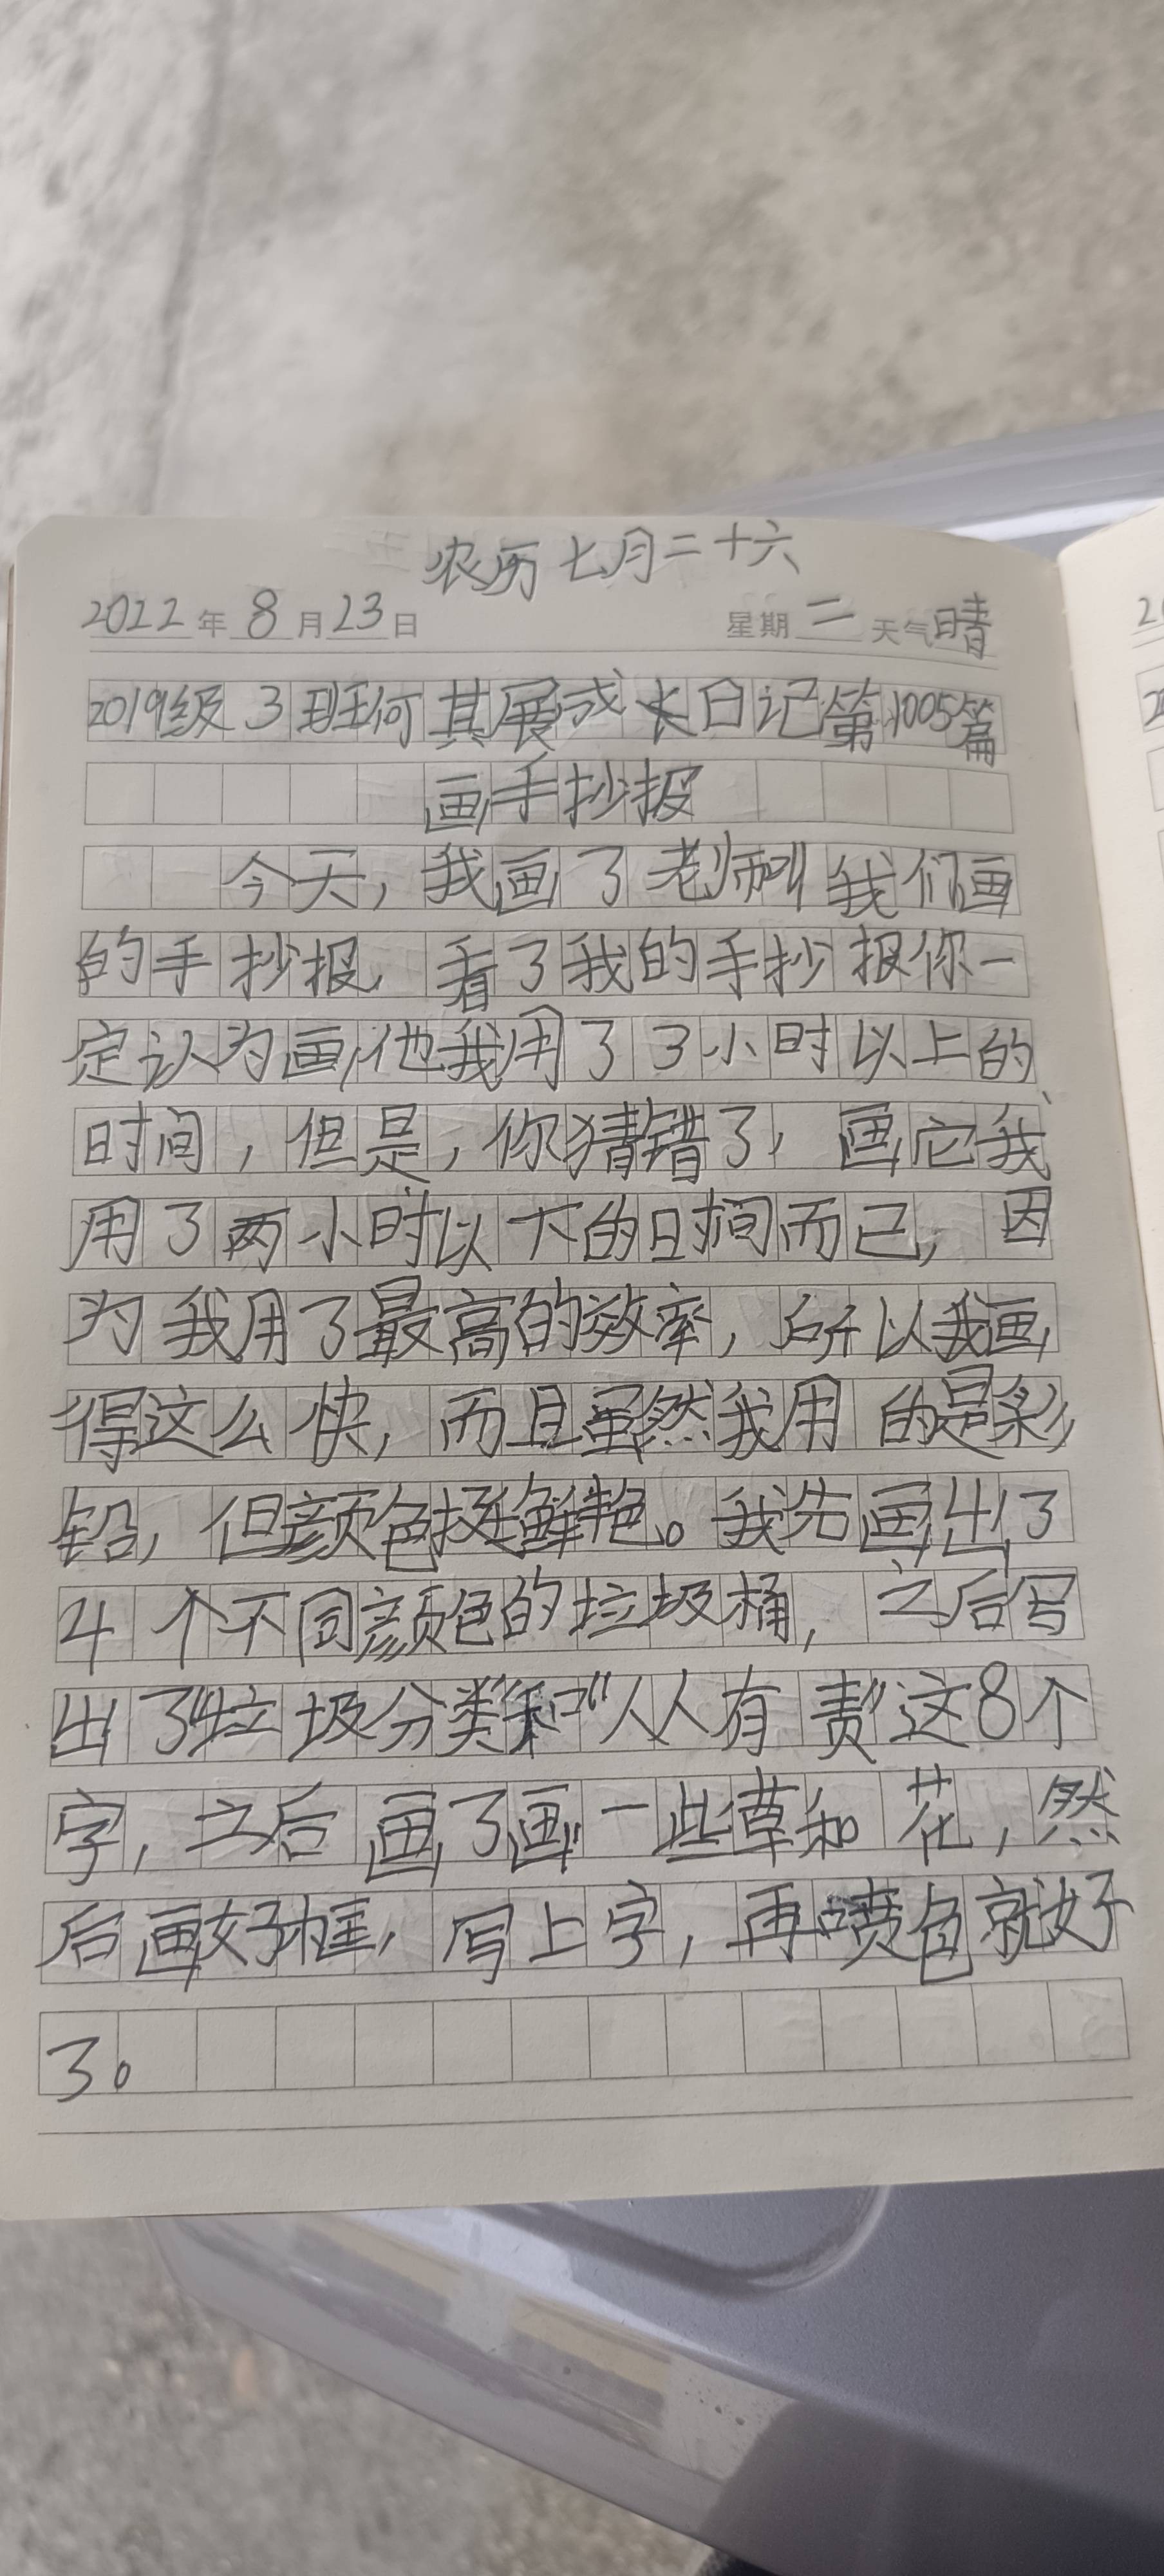 农历七月二十六
2022年8月23日 星期二天气晴
2019级3班何其展成长日记第1005篇
画手抄报
今天,我画了老师叫我们画
的手抄报,看了我的手抄报你一
定认为画他我用了3小时以上的
时间,但是,你猜错了,画它我
用了两小时以下的时间而已,因
为我用了最高的效率,所以我画
得这么快,而且虽然我用的是彩
铅,但颜色挺鲜艳。我先画出了
4个不同颜色的垃圾桶,之后写
出了“垃圾分类和“人人有责”这8个
字,之后画了画一些草和花,然
后画好框,写上字,再喷色就好
了。